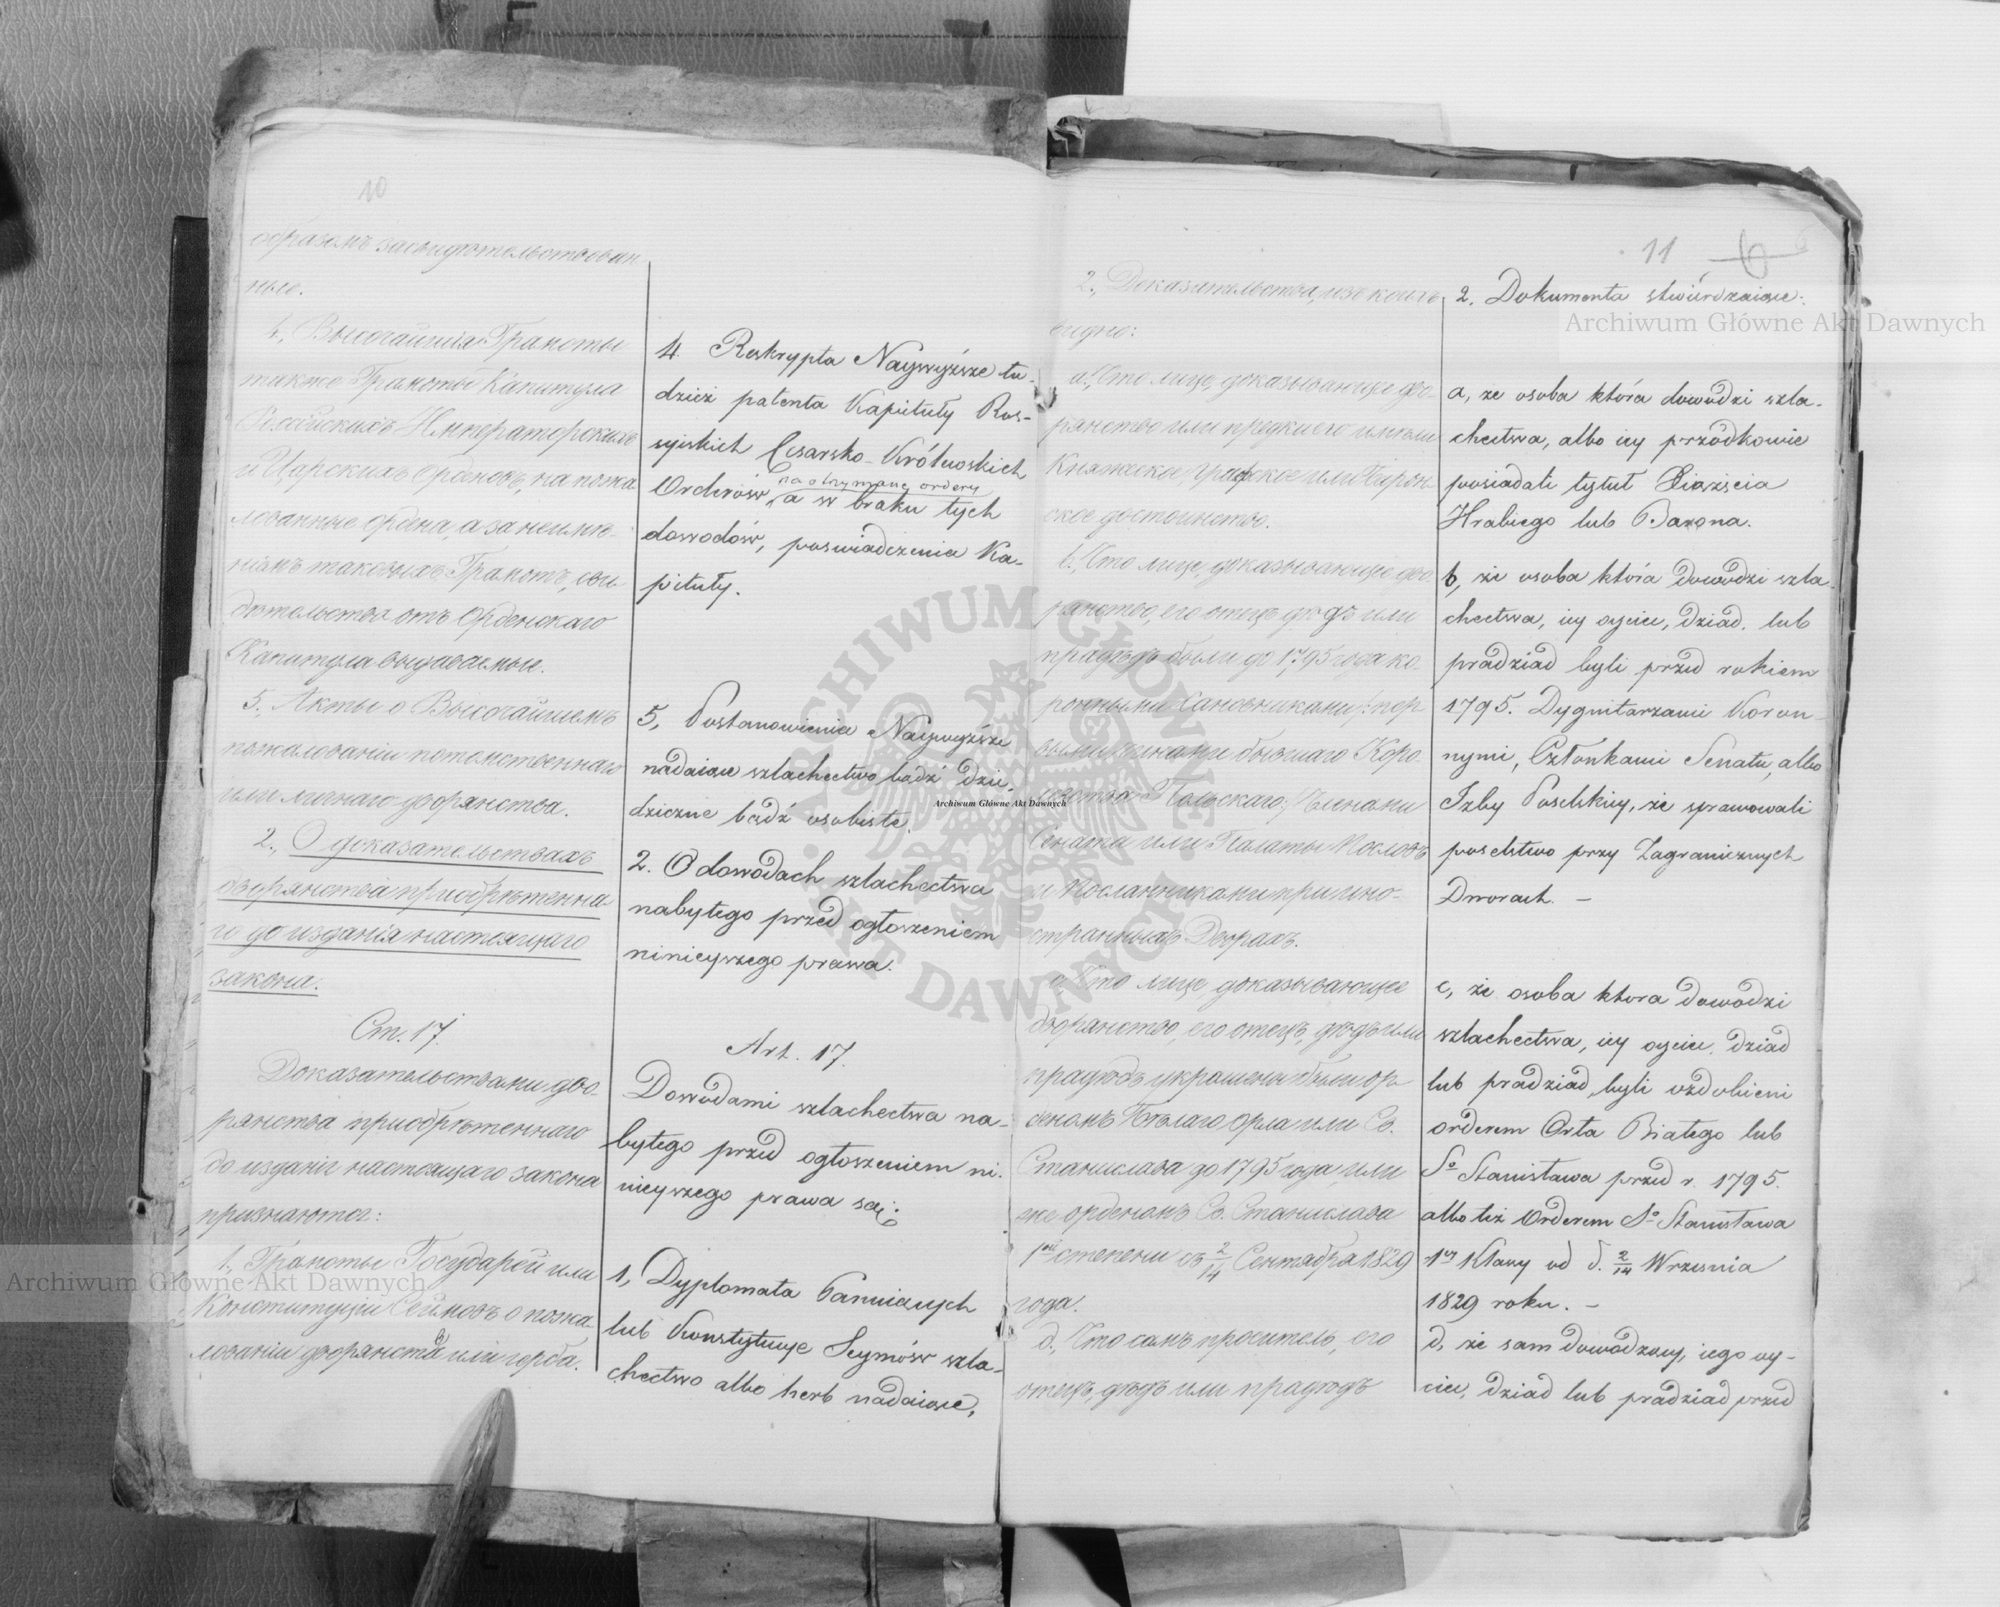 10
образомъ засвидѣтельствован
ные.
4., Высочайшія Грамоты
также Грамоты Капитула
Россійскихъ Императорскихъ
и Царскихъ Орденовъ, на пожа
лованные ордена, а за неимѣ-
ніемъ таковыхъ Грамотъ, сви
дѣтельства отъ Орденскаго
Капитула выдаваемые.
5., Акты о Высочайшемъ
пожалованіи потомственнаго
или личнаго дворянства.
2., О доказательствахъ
дворянства приобрѣтенна
го до изданія настоящаго
закона.
Ст. 17.
Доказательствами дво-
рянства приобрѣтеннаго
до изданія настоящаго закона
признаются:
1., Грамоты Государей или
Конституціи Сеймовъ о пожа
лованіи дворянства или герба.
4. Reskrypta Naywyższe tu-
dzież patenta Kapituły Ros-
syiskich Cesarsko-Królewskich
Orderów, na otrzymane ordery
a w braku tych
dowodów, poswiadczenia Ka-
pituły.
5, Postanowienia Naywyższe
nadaiące szlachectwo bądź dzie-
dziczne bądź osobiste.
2. O dowodach szlachectwa
nabytego przed ogłoszeniem
ninieyszego prawa.
Art. 17.
Dowodami szlachectwa na-
bytego przed ogłoszeniem ni-
nieyszego prawa są:
1, Dyplomata Panuiących
lub Konstytucye Seymów szla-
chectwo albo herb nadaiące,
11 6
2., Доказательства, изъ коихъ
видно:
а., Что лице, доказывающее дво-
рянство или предки его имѣли
Княжеское, Графское или Барон
ское достоинство.
b., Что лице, доказывающее дво-
рянство, его отецъ, дѣдъ или
прадѣдъ были до 1795 года ко
ронными Сановниками /: пер
выми чинами бывшаго Коро
левства Польскаго :/ Членами
Сената или Палаты Пословъ
и Посланниками при ино-
странныхъ Дворахъ.
c., Что лице, доказывающее
дворянство, его отецъ, дѣдъ или
прадѣдъ украшены были ор
деномъ Бѣлаго Орла или Св.
Станислава до 1795 года, или
же орденомъ Св. Станислава
1ой степени съ 2/14 Сентября 1829
года.
d., Что самъ проситель, его
отецъ, дѣдъ или прадѣдъ
2. Dokumenta stwierdzaiące:
a, że osoba która dowodzi szla-
chectwa, albo iey przodkowie
posiadali tytuł Xiążęcia
Hrabiego lub Barona.
b, że osoba która dowodzi szla-
chectwa, iey oyciec, dziad, lub
pradziad byli przed rokiem
1795. Dygnitarzami Koron-
nymi, Członkami Senatu, albo
Izby Poselskiey, że sprawowali
poselstwo przy Zagranicznych
Dworach. -
c, że osoba ktora dowodzi
szlachectwa, iey oyciec, dziad
lub pradziad, byli ozdobieni
orderem Orła Białego lub
So Stanisława przed r. 1795.
albo też Orderem So Stanisława
1ey Klassy od d. 2/14 Września
1829 roku. -
d, że sam dowodzący, iego oy-
ciec, dziad lub pradziad przed
Archiwum Główne Akt Dawnych
Archiwum Główne Akt Dawnych
Archiwum Główne Akt Dawnych
ARCHIWUM GŁÓWNE AKT DAWNYCH